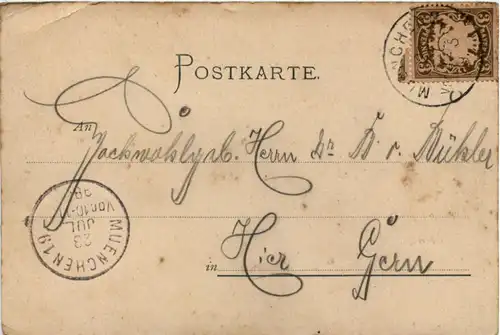 POSTKARTE.
An Hochwohlgeb. Herrn Dr. B. v. Bühler
in Hier Gern
MUENCHEN 19
23
JUL
Vor.10-
98
MUENCHEN